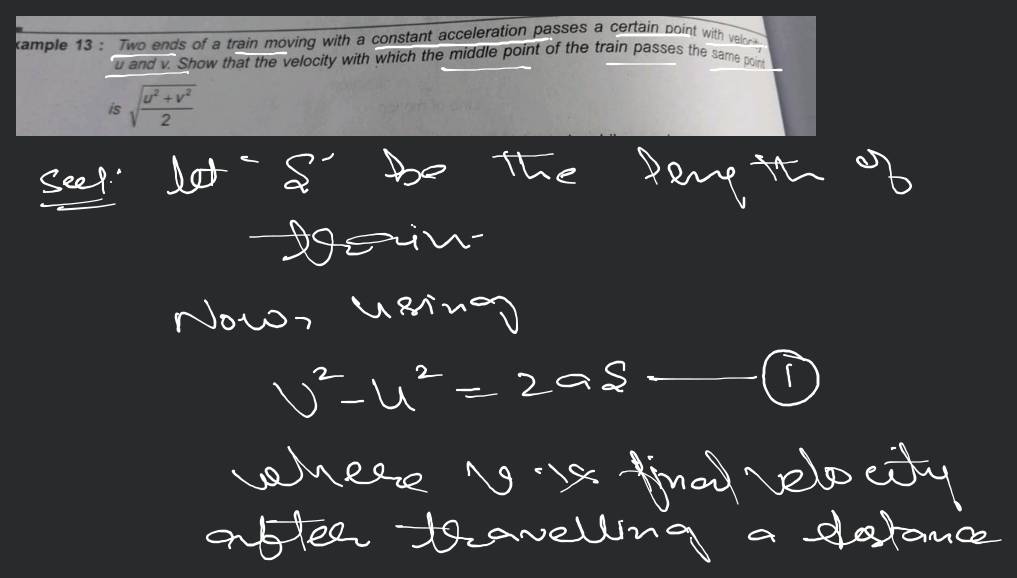 xample 13 : Two ends of a train moving with a constant acceleration passes a certain point with
u and v. Show that the velocity with which the middle point of the train passes the same point
is √((u² + v²)/2)
let 'S' be the length of
train
Now, using
v² - u² = 2aS ——— ①
where v is final velocity
after travelling a distance